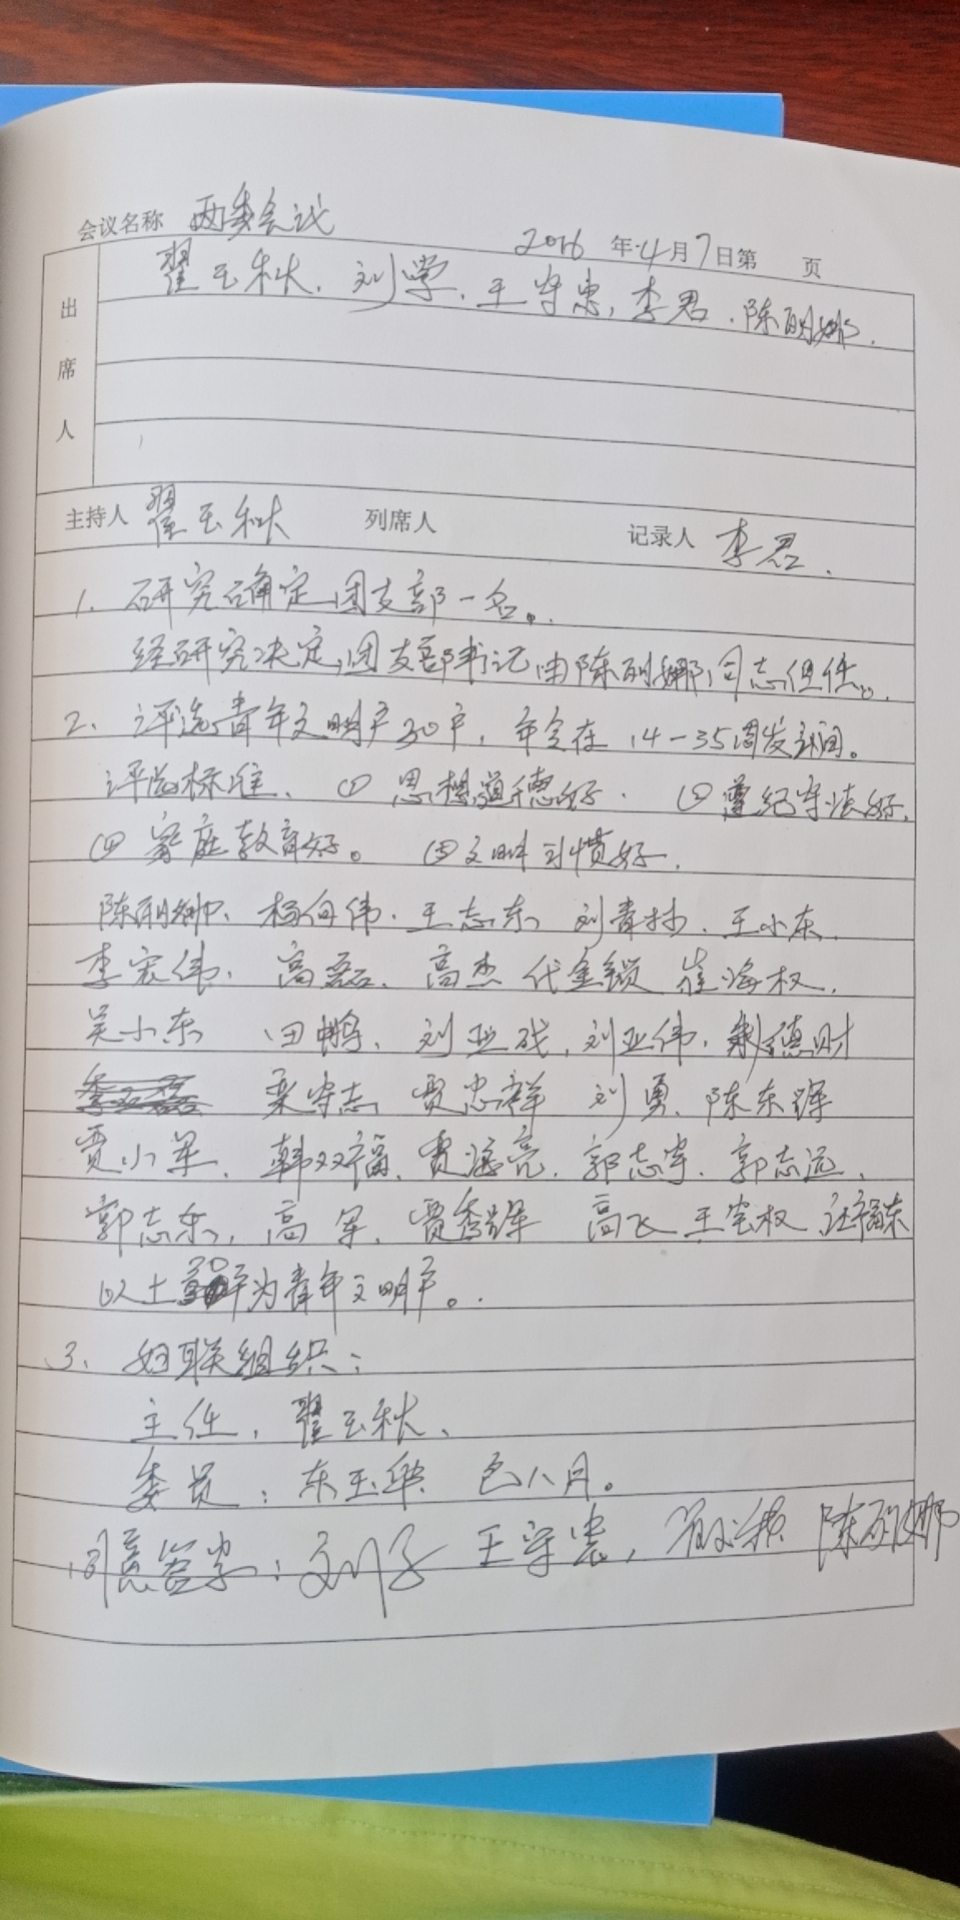 会议名称 两委会议
2016年4月7日第 页
出席人 翟玉秋、刘学、王守忠、李君、陈丽娜、
主持人 翟玉秋 列席人 记录人 李君、
1、研究确定团支部一名。
经研究决定团支部书记由陈丽娜同志但任。
2、评选青年文明户30户,年令在14-35周岁之间。
评选标准、① 思想道德好、 遵纪守法好、
④ 家庭教育好。 ⑤文明习惯好、
陈丽娜、杨向伟、王志东 刘青林、王小东、
李宏伟、高磊、高杰 代金锁 崔海权、
吴小东 田鹏、刘亚成、刘亚伟、 德财
栾守志 贾忠祥 刘勇、陈东辉
贾小军、韩双福、贾海亮、郭志军、郭志远、
郭志东、高军、贾秀军 高飞 王宝权 汪福东
以上 为青年文明户。
3、妇联组织:
主任、翟玉秋、
委员:东玉华 包八月。
同意签字:刘学 王守忠, 翟玉秋 陈丽娜